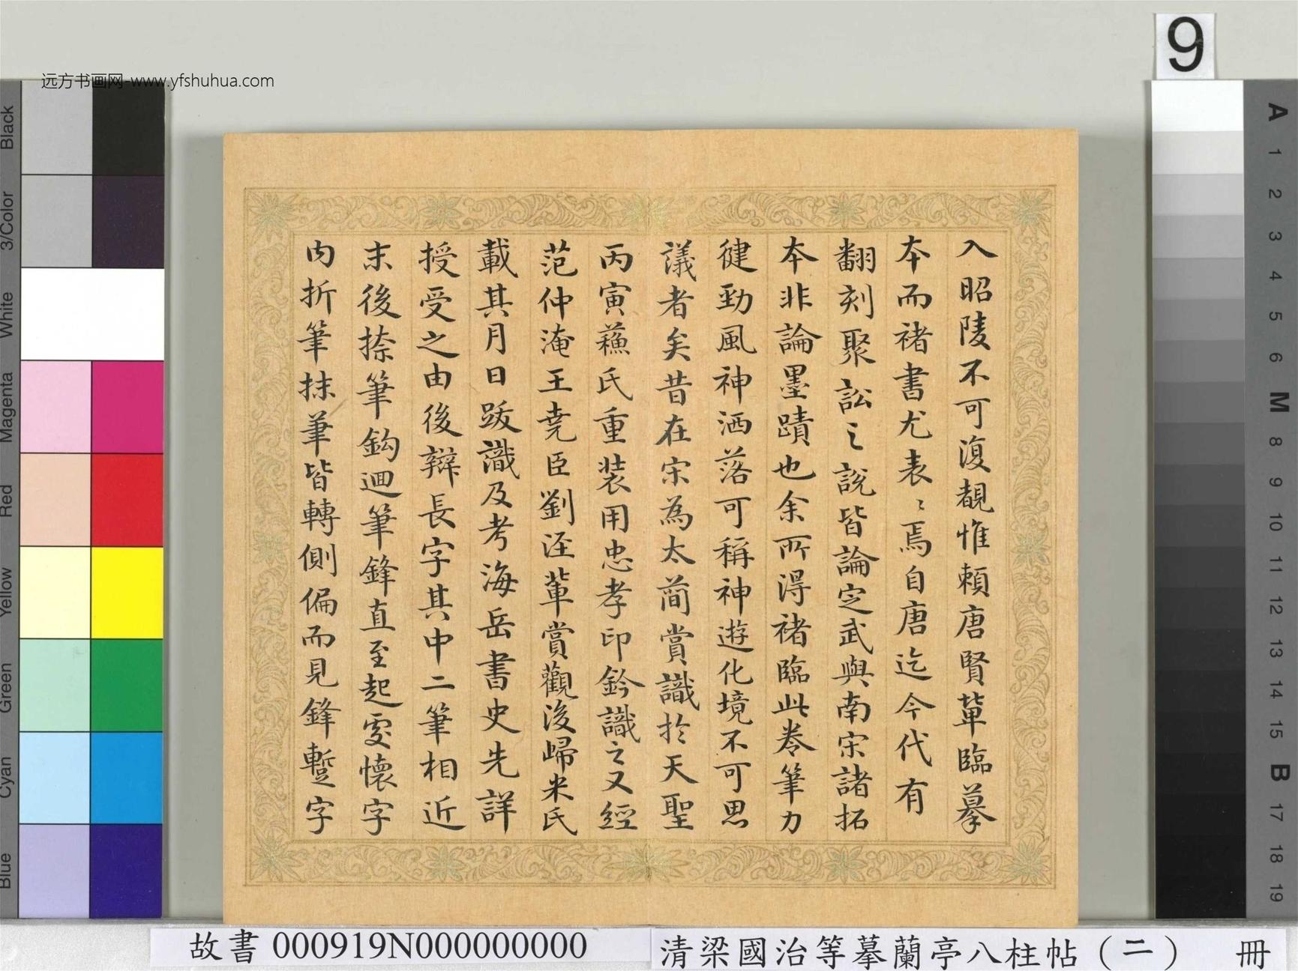 入昭陵不可復覩惟賴唐賢軰臨摹
本而褚書尤表〻焉自唐迄今代有
翻刻聚訟之說皆論定武與南宋諸拓
本非論墨蹟也余所得褚臨此卷筆力
健勁風神洒落可稱神遊化境不可思
議者矣昔在宋為太簡賞識於天聖
丙寅蘓氏重装用忠孝印鈐識之又經
范仲淹王堯臣劉涇軰賞觀後歸米氏
載其月日跋識及考海岳書史先詳
授受之由後辯長字其中二筆相近
末後捺筆鈎迴筆鋒直至起處懷字
內折筆抹筆皆轉側偏而見鋒蹔字
远方书画网-www.yfshuhua.com
9
Black
3/Color
White
Magenta
Red
Yellow
Green
Cyan
Blue
A
1
2
3
4
5
6
M
8
9
10
11
12
13
14
15
B
17
18
19
故書 000919N000000000
清梁國治等摹蘭亭八柱帖（二） 冊